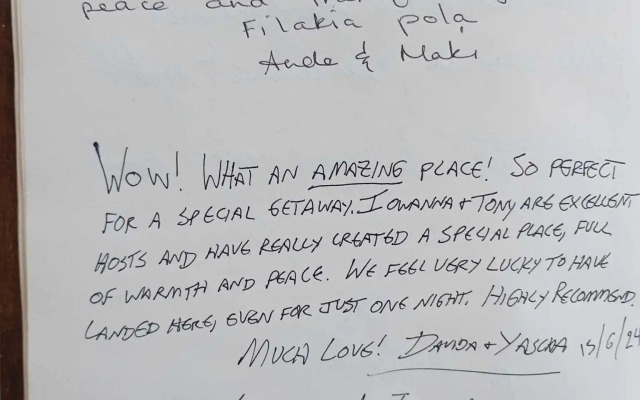 peace and
Filakia pola
Ande & Maki
WOW! WHAT AN AMAZING PLACE! SO PERFECT
FOR A SPECIAL GETAWAY. IOWANNA + TONY ARE EXCELLENT
HOSTS AND HAVE REALLY CREATED A SPECIAL PLACE, FULL
OF WARMTH AND PEACE. WE FEEL VERY LUCKY TO HAVE
LANDED HERE, EVEN FOR JUST ONE NIGHT. HIGHLY RECOMMEND.
MUCH LOVE! + /6/24